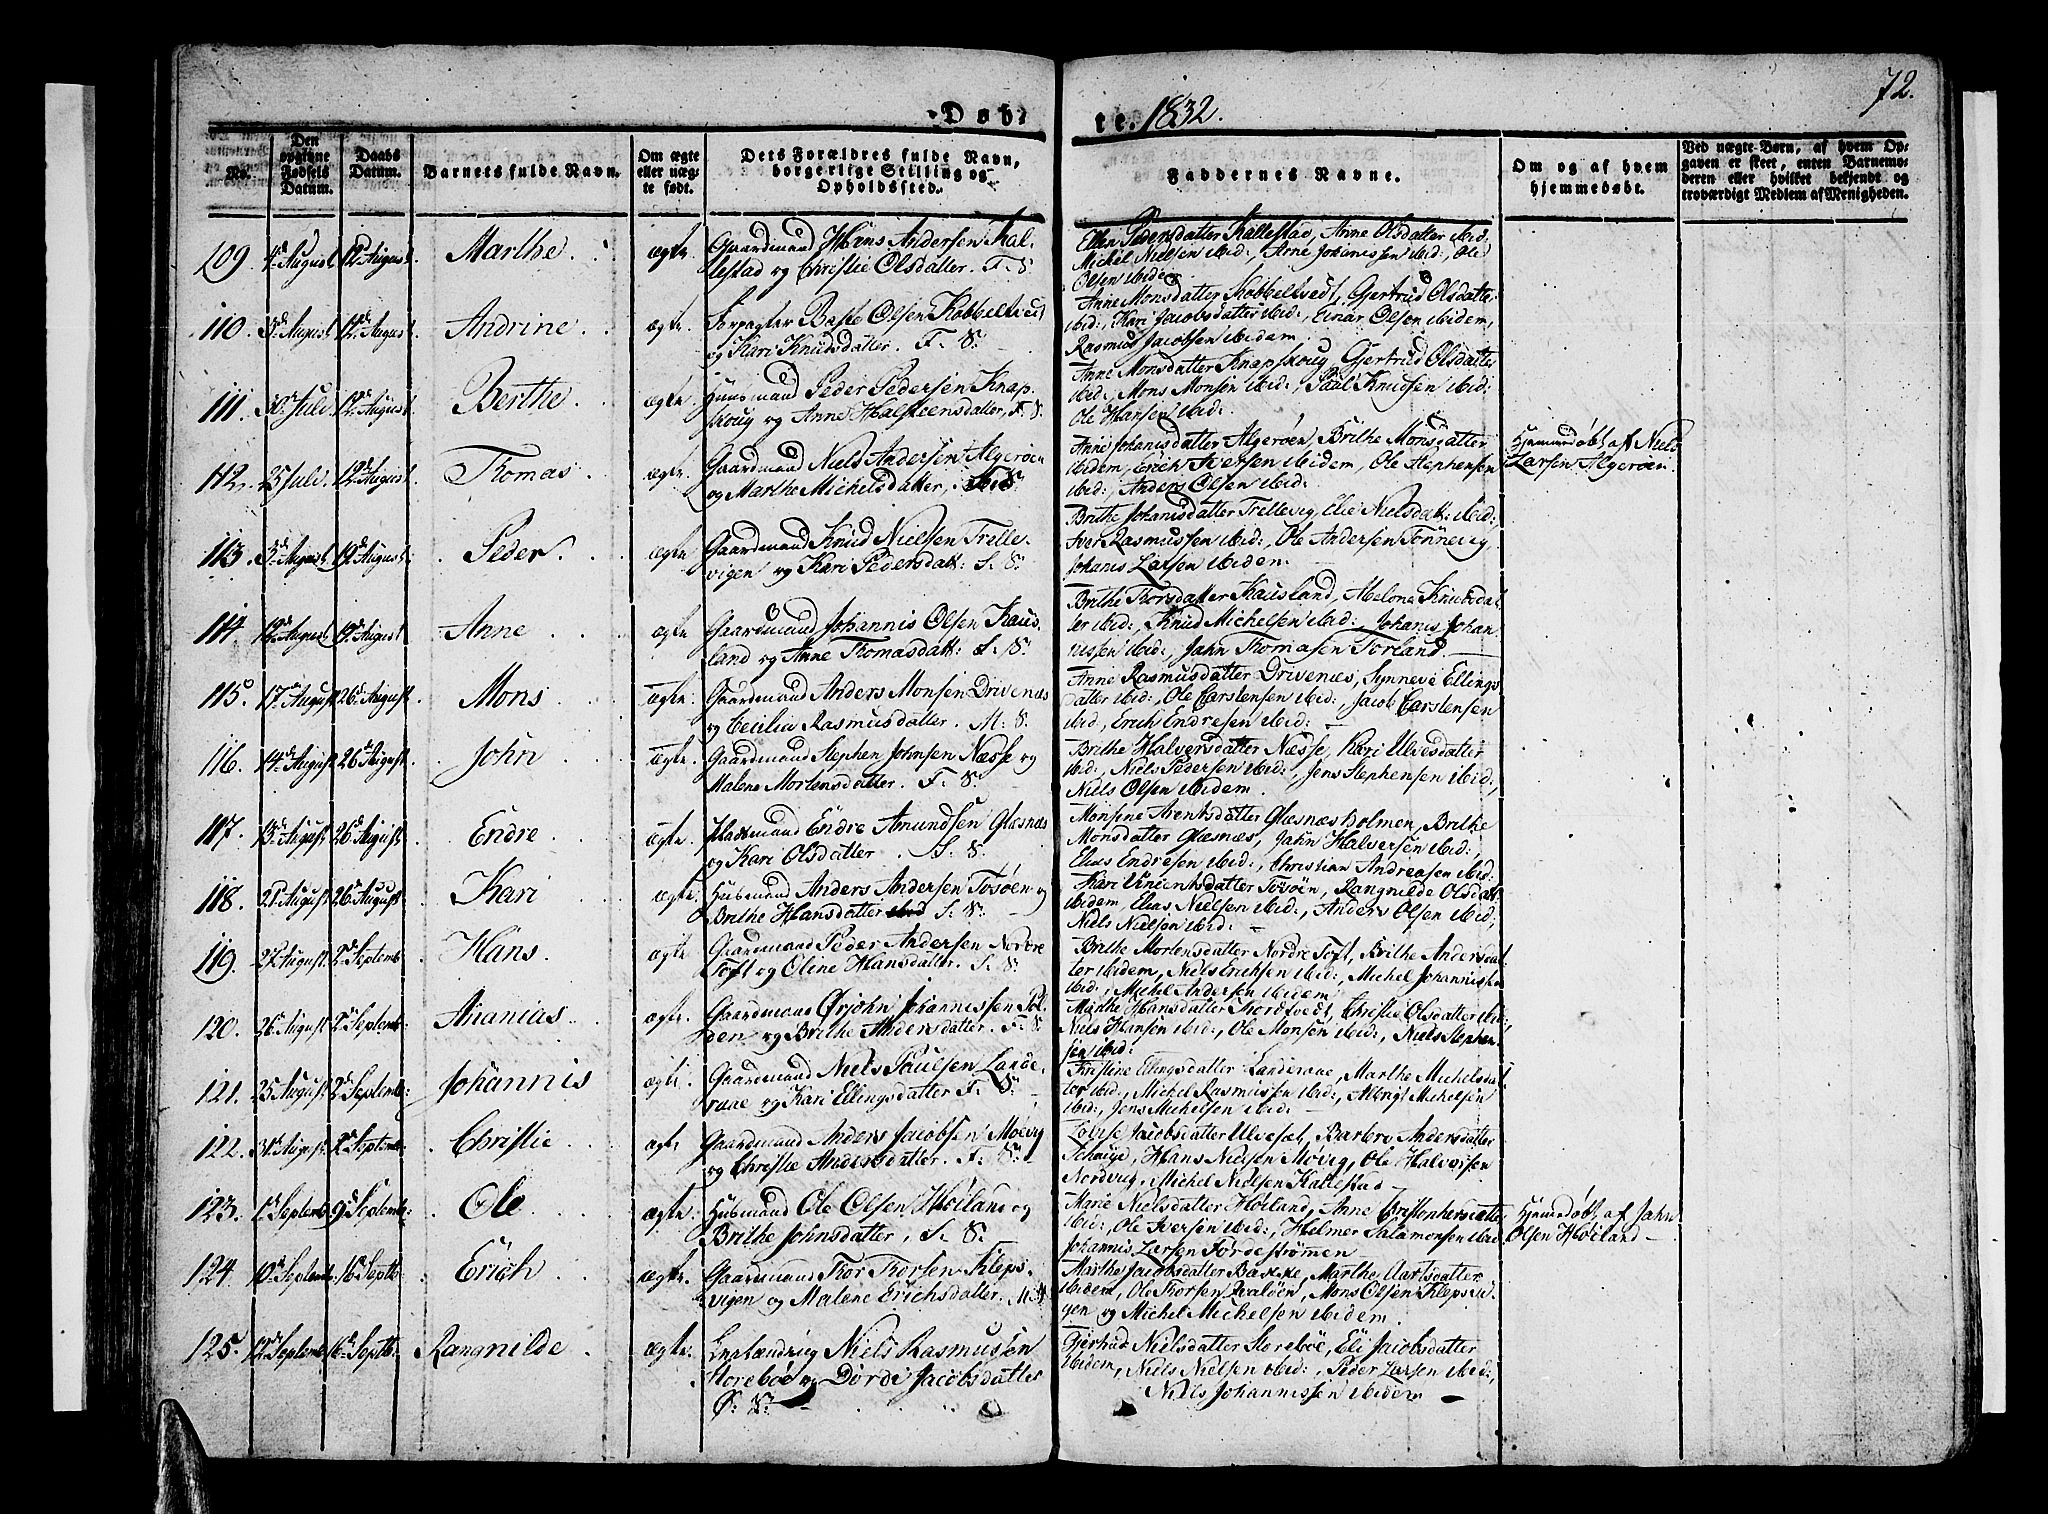 72.
Døb- te. 1832.
No.
Den opgivne Fødsels Datum.
Daabs Datum.
Barnets fulde Navn.
Om ægte eller uægte født.
Dets Forældres fulde Navn, borgerlige Stilling og Opholdssted.
Faddernes Navne.
Om og af hvem hjemmedøbt.
Ved uægte Børn, af hvem Opgaven er skeet, enten Barnemoderen eller hvilket bekjendt og troværdigt Medlem af Menigheden.
109. 4de August 12te August Marthe ægte Gaardmand Hans Andersen Kal-
lestad og Christie Olsdatter. F. S.
Ellen Pedersdatter Kallestad, Anne Olsdatter ibid:
Michel Nielsen ibid:, Arne Johannissen ibid:, Ole
Olsen ibidem
110. 5te August 12te August Andrine ægte Forpagter Baste Olsen Kobbeltvedt
og Kari Knudsdatter. F. S.
Anne Monsdatter Kobbeltvedt, Gjertrud Olsdatter
ibid:, Kari Jacobsdatter ibid:, Einar Olsen ibidem,
Rasmus Jacobsen ibidem.
111. 30te Juli 12te August Berthe ægte Huusmand Peder Pedersen Knap-
skoug og Anne Halsteensdatter, F. S.
Anne Monsdatter Knapskoug, Gjertrud Olsdatter
ibid:, Mons Monsen ibid:, Paul Knudsen ibid:
Ole Hansen ibid:
112. 25 Juli 12te August Thomas ægte Gaardmand Niels Andersen Algerøen
og Marthe Michelsdatter,
Anne Johanisdatter Algerøen, Brithe Monsdatter
ibidem, Erich Iversen ibidem, Ole Stephensen
ibid:, Anders Olsen ibid:
Hjemmedøbt af Niels
Larsen Algerøen
113. 3de August 19de August Peder ægte Gaardmand Knud Nielsen Trelle-
vigen og Kari Pedersdatt: S. S.
Brithe Johanisdatter Trellevig, Elie Nielsdatt: ibid:
Iver Rasmussen ibid:, Ole Andersen Tønnevig,
Johanis Larsen ibidem.
114. 12te August 19de August Anne ægte Gaardmand Johannis Olsen Kaus-
land og Anne Thomasdatt: S. S.
Brithe Thorsdatter Kausland, Melone Knudsdat-
ter ibid:, Knud Michelsen ibid:, Johanis Johan-
nissen ibid:, Jahn Thomasen Torland
115. 17de August 26de August Mons ægte Gaardmand Anders Monsen Drivenæs
og Cecilia Rasmusdatter. M. S.
Anne Rasmusdatter Drivenæs, Synneve Ellings-
datter ibid:, Ole Carstensen ibid:, Jacob Carstensen
ibid:, Erich Endresen ibid:
116. 14de August 26de August John ægte Gaardmand Stephen Johnsen Næsse og
Malene Mortensdatter. F. S.
Brithe Halversdatter Næsse, Kari Ulvesdatter
ibid:, Niels Pedersen ibid:, Jens Stephensen ibid:,
Niels Olsen ibidem.
117. 13de August 26de August Endre ægte Endre Amundsen Glæsnæs
og Kari Olsdatter. S. S.
Monsine Arentsdatter Glæsnæsholmen, Brithe
Monsdatter Glæsnæs, Jahn Halversen ibid:,
Elias Endresen ibid:, Christian Andreasen ibid:
118. 21de August 26de August Kari ægte Husmand Anders Andersen Toføen og
Brithe Hansdatter S. S.
Kari Vincentsdatter Toføen, Rangnilde Olsdatt:
ibidem, Elias Nielsen ibid:, Anders Olsen ibid:,
Niels Nielsen ibid:
119. 22de August 2de Septemb: Hans ægte Gaardmand Peder Andersen Nordre
Toft og Oline Hansdatter. S. S.
Brithe Mortensdatter Nordre Toft, Brithe Andersdat-
ter ibidem, Niels Ericksen ibid:, Michel Johannissen
ibid:, Michel Andersen ibidem
120. 26de August 2de Septemb: Ananias ægte Gaardmand Ørjohn Johannissen Pol-
den og Brithe Andersdatter. F. S.
Marthe Hansdatter, Christie Olsdatter ibid:,
Niels Hansen ibid:, Ole Monsen ibid:, Niels Stephen-
sen ibid:
121. 25 August 2de Septemb: Johannis ægte Gaardmand Niels Poulsen Lande-
raae og Kari Ellingsdatter F. S.
Christine Ellingsdatter Landeraae, Marthe Michelsdat-
ter ibid:, Michel Rasmussen ibid:, Mongs Michelsen
ibid:, Jens Michelsen ibid:
122. 31te August 2de Septemb: Christie ægte Gaardmand Anders Jacobsen Moevig
og Christie Andersdatter. F. S.
Lovise Jacobsdatter Ulveset, Barbro Andersdatter
Schauge, Hans Nielsen Møvig, Ole Halversen
Nordvig, Michel Nielsen Kallestad
123. 1de Septemb: 9de Septemb: Ole ægte Husmand Ole Olsen Høiland og
Brithe Johnsdatter, S. S.
Marie Nielsdatter Høiland, Anne Christophersdatter
ibid:, Ole Iversen ibid:, Helmer Salamonsen ibid:
Johannis Larsen Førdestrømen
Hjemedøbt af Jahn
Olsen Høiland
124. 10de Septemb: 16de Septb: Erich ægte Gaardmand Thor Thorsen Kleps-
vigen og Malene Erichsdatter. M. S.
Marthe Jacobsdatter Bakke, Marthe Aartsdatter
ibidem, Ole Thorsen, Mons Olsen Klepsvi-
gen og Michel Michelsen ibidem.
125. 12de Septemb: 16de Septb: Rangnilde ægte Niels Rasmussen
Storebøe og Dorde Jacobsdatter
Ø. S.
Gjertrud Nielsdatter Storebøe, Eli Jacobsdatter
ibidem, Niels Nielsen ibid:, Peder Larsen ibid:,
Niels Johannissen ibidem